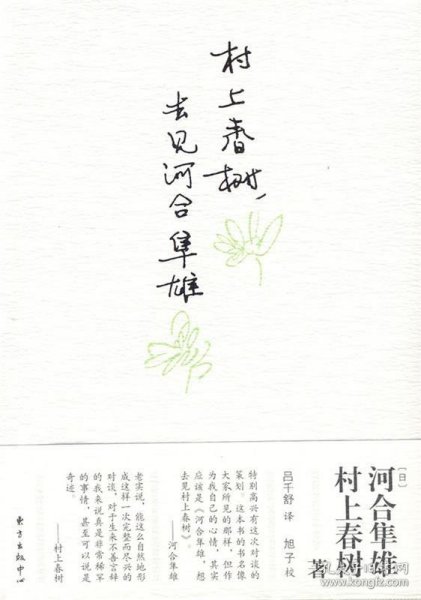 村上春树，
去见河合隼雄
[日]
河合隼雄
村上春树
著
吕千舒 译 旭子 校
特别高兴有这次对谈的
策划。这本书的书名像
大家所见的那样，但作
为我自己的心情，其实
应该是《河合隼雄，想
去见村上春树》
——河合隼雄
老实说，能这么自然地形
成这样一次完整而尽兴的
对谈，对于生来不善言辞
的我来说真是非常稀罕
的事情，甚至可以说是
奇迹。
——村上春树
东方出版中心
孔夫子旧书网
www.kongfz.com